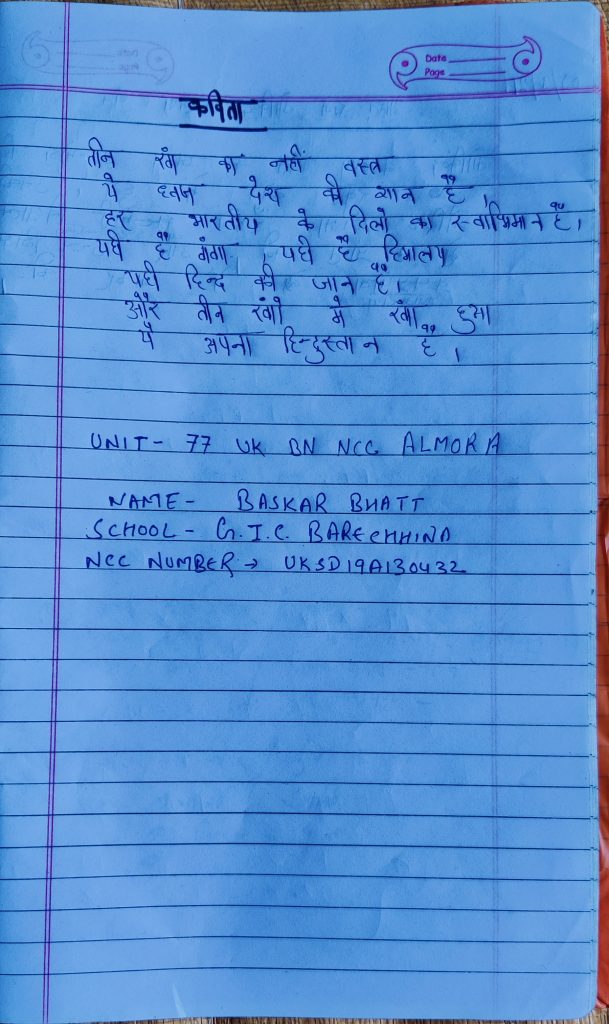 Date
Page
कविता
तीन रंग का नहीं वस्त्र
ये ध्वज देश की शान है,
हर भारतीय के दिलो का स्वाभिमान है।
यही है गंगा, यही है हिमालय
यही हिन्द की जान है।
और तीन रंगो मे रंगा हुआ
ये अपना हिन्दुस्तान है।
UNIT- 77 UK BN NCC ALMORA
NAME- BASKAR BHATT
SCHOOL- G.I.C. BARECHHINA
NCC NUMBER → UKSD19A130432